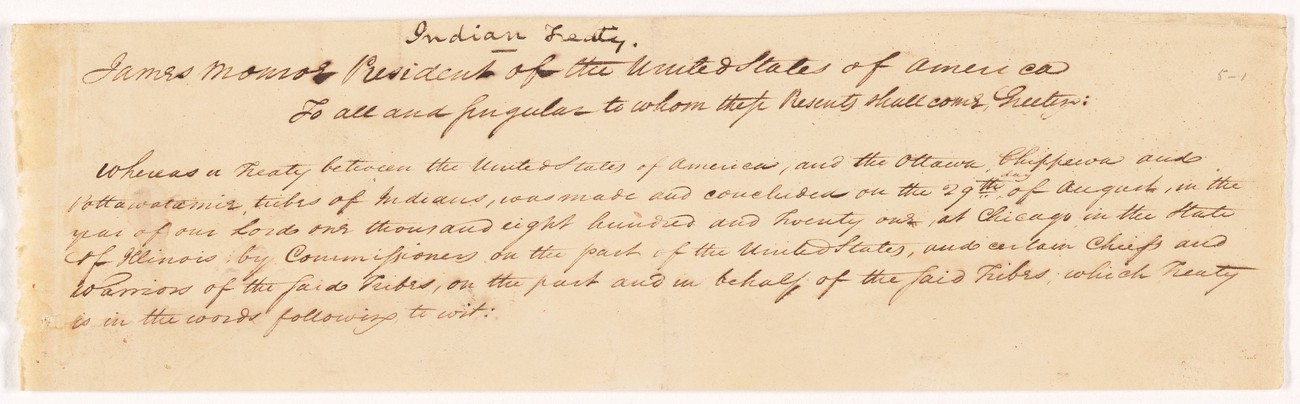 Indian Treaty.
James Monroe President of the United States of America
5-1
To all and singular to whom these Presents shall come, Greeting:
Whereas a Treaty between the United States of America, and the Ottawa, Chippewa and
day
Pottawatamie, tribes of Indians, was made and concluded on the 29th of August, in the
year of our Lord one thousand eight hundred and twenty one, at Chicago, in the State
of Illinois, by Commissioners on the part of the United States, and certain Chiefs and
Warriors of the said Tribes, on the part and in behalf of the said Tribes, which Treaty
is in the words following to wit: